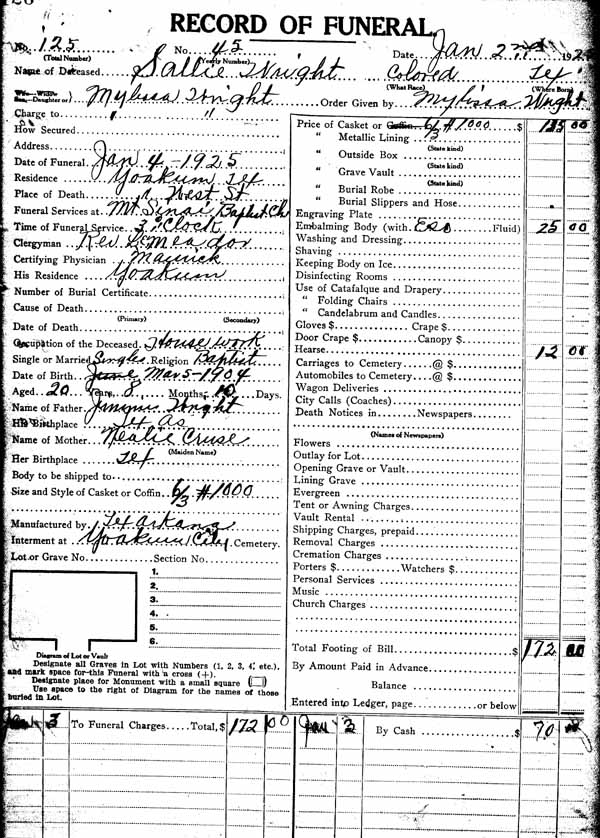 RECORD OF FUNERAL
No. 125 No. 45 Date Jan 2nd 192
(Total Number) (Yearly Number)
Name of Deceased Sallie Wright Colored Tex
(What Race) (Where Born)
Wife—Widow
Son—Daughter of) Mylissa Wright Order Given by Mylissa Wright
Charge to " "
How Secured
Address
Date of Funeral Jan 4 - 1925
Residence Yoakum Tex
Place of Death West St
Funeral Services at Mt. Sinai Baptist Ch
Time of Funeral Service 3 o'Clock
Clergyman Rev Meador
Certifying Physician
His Residence Yoakum
Number of Burial Certificate
Cause of Death
(Primary) (Secondary)
Date of Death
Occupation of the Deceased House work
Single or Married Single Religion Baptist
Date of Birth June Mar 5 - 1904
Aged 20 Years 8 Months 10 Days.
Name of Father Jimmie Wright
His Birthplace Tex as
Name of Mother Nealie Cruse
(Maiden Name)
Her Birthplace Tex
Body to be shipped to
Size and Style of Casket or Coffin 6/3 #1000
Manufactured by Texarkana
Interment at Yoakum City Cemetery.
Lot or Grave No. Section No.
1.
2.
3.
4.
5.
6.
Diagram of Lot or Vault
Designate all Graves in Lot with Numbers (1, 2, 3, 4, etc.),
and mark space for this Funeral with a cross (+).
Designate place for Monument with a small square
Use space to the right of Diagram for the names of those
buried in Lot.
Price of Casket or Coffin 6/3 #1000 $ 135 00
" Metallic Lining
(State kind)
" Outside Box
(State kind)
" Grave Vault
(State kind)
" Burial Robe
" Burial Slippers and Hose
Engraving Plate
Embalming Body (with Fluid) 25 00
Washing and Dressing
Shaving
Keeping Body on Ice
Disinfecting Rooms
Use of Catafalque and Drapery
" Folding Chairs
" Candelabrum and Candles
Gloves $ Crape $
Door Crape $ Canopy $
Hearse 12 00
Carriages to Cemetery @ $
Automobiles to Cemetery @ $
Wagon Deliveries
City Calls (Coaches)
Death Notices in Newspapers
(Names of Newspapers)
Flowers
Outlay for Lot
Opening Grave or Vault
Lining Grave
Evergreen
Tent or Awning Charges
Vault Rental
Shipping Charges, prepaid
Removal Charges
Cremation Charges
Porters $ Watchers $
Personal Services
Music
Church Charges
Total Footing of Bill $ 172 00
By Amount Paid in Advance
Balance
Entered into Ledger, page or below
Jan 3 To Funeral Charges Total, $ 172 00 Jan 3 By Cash $ 70